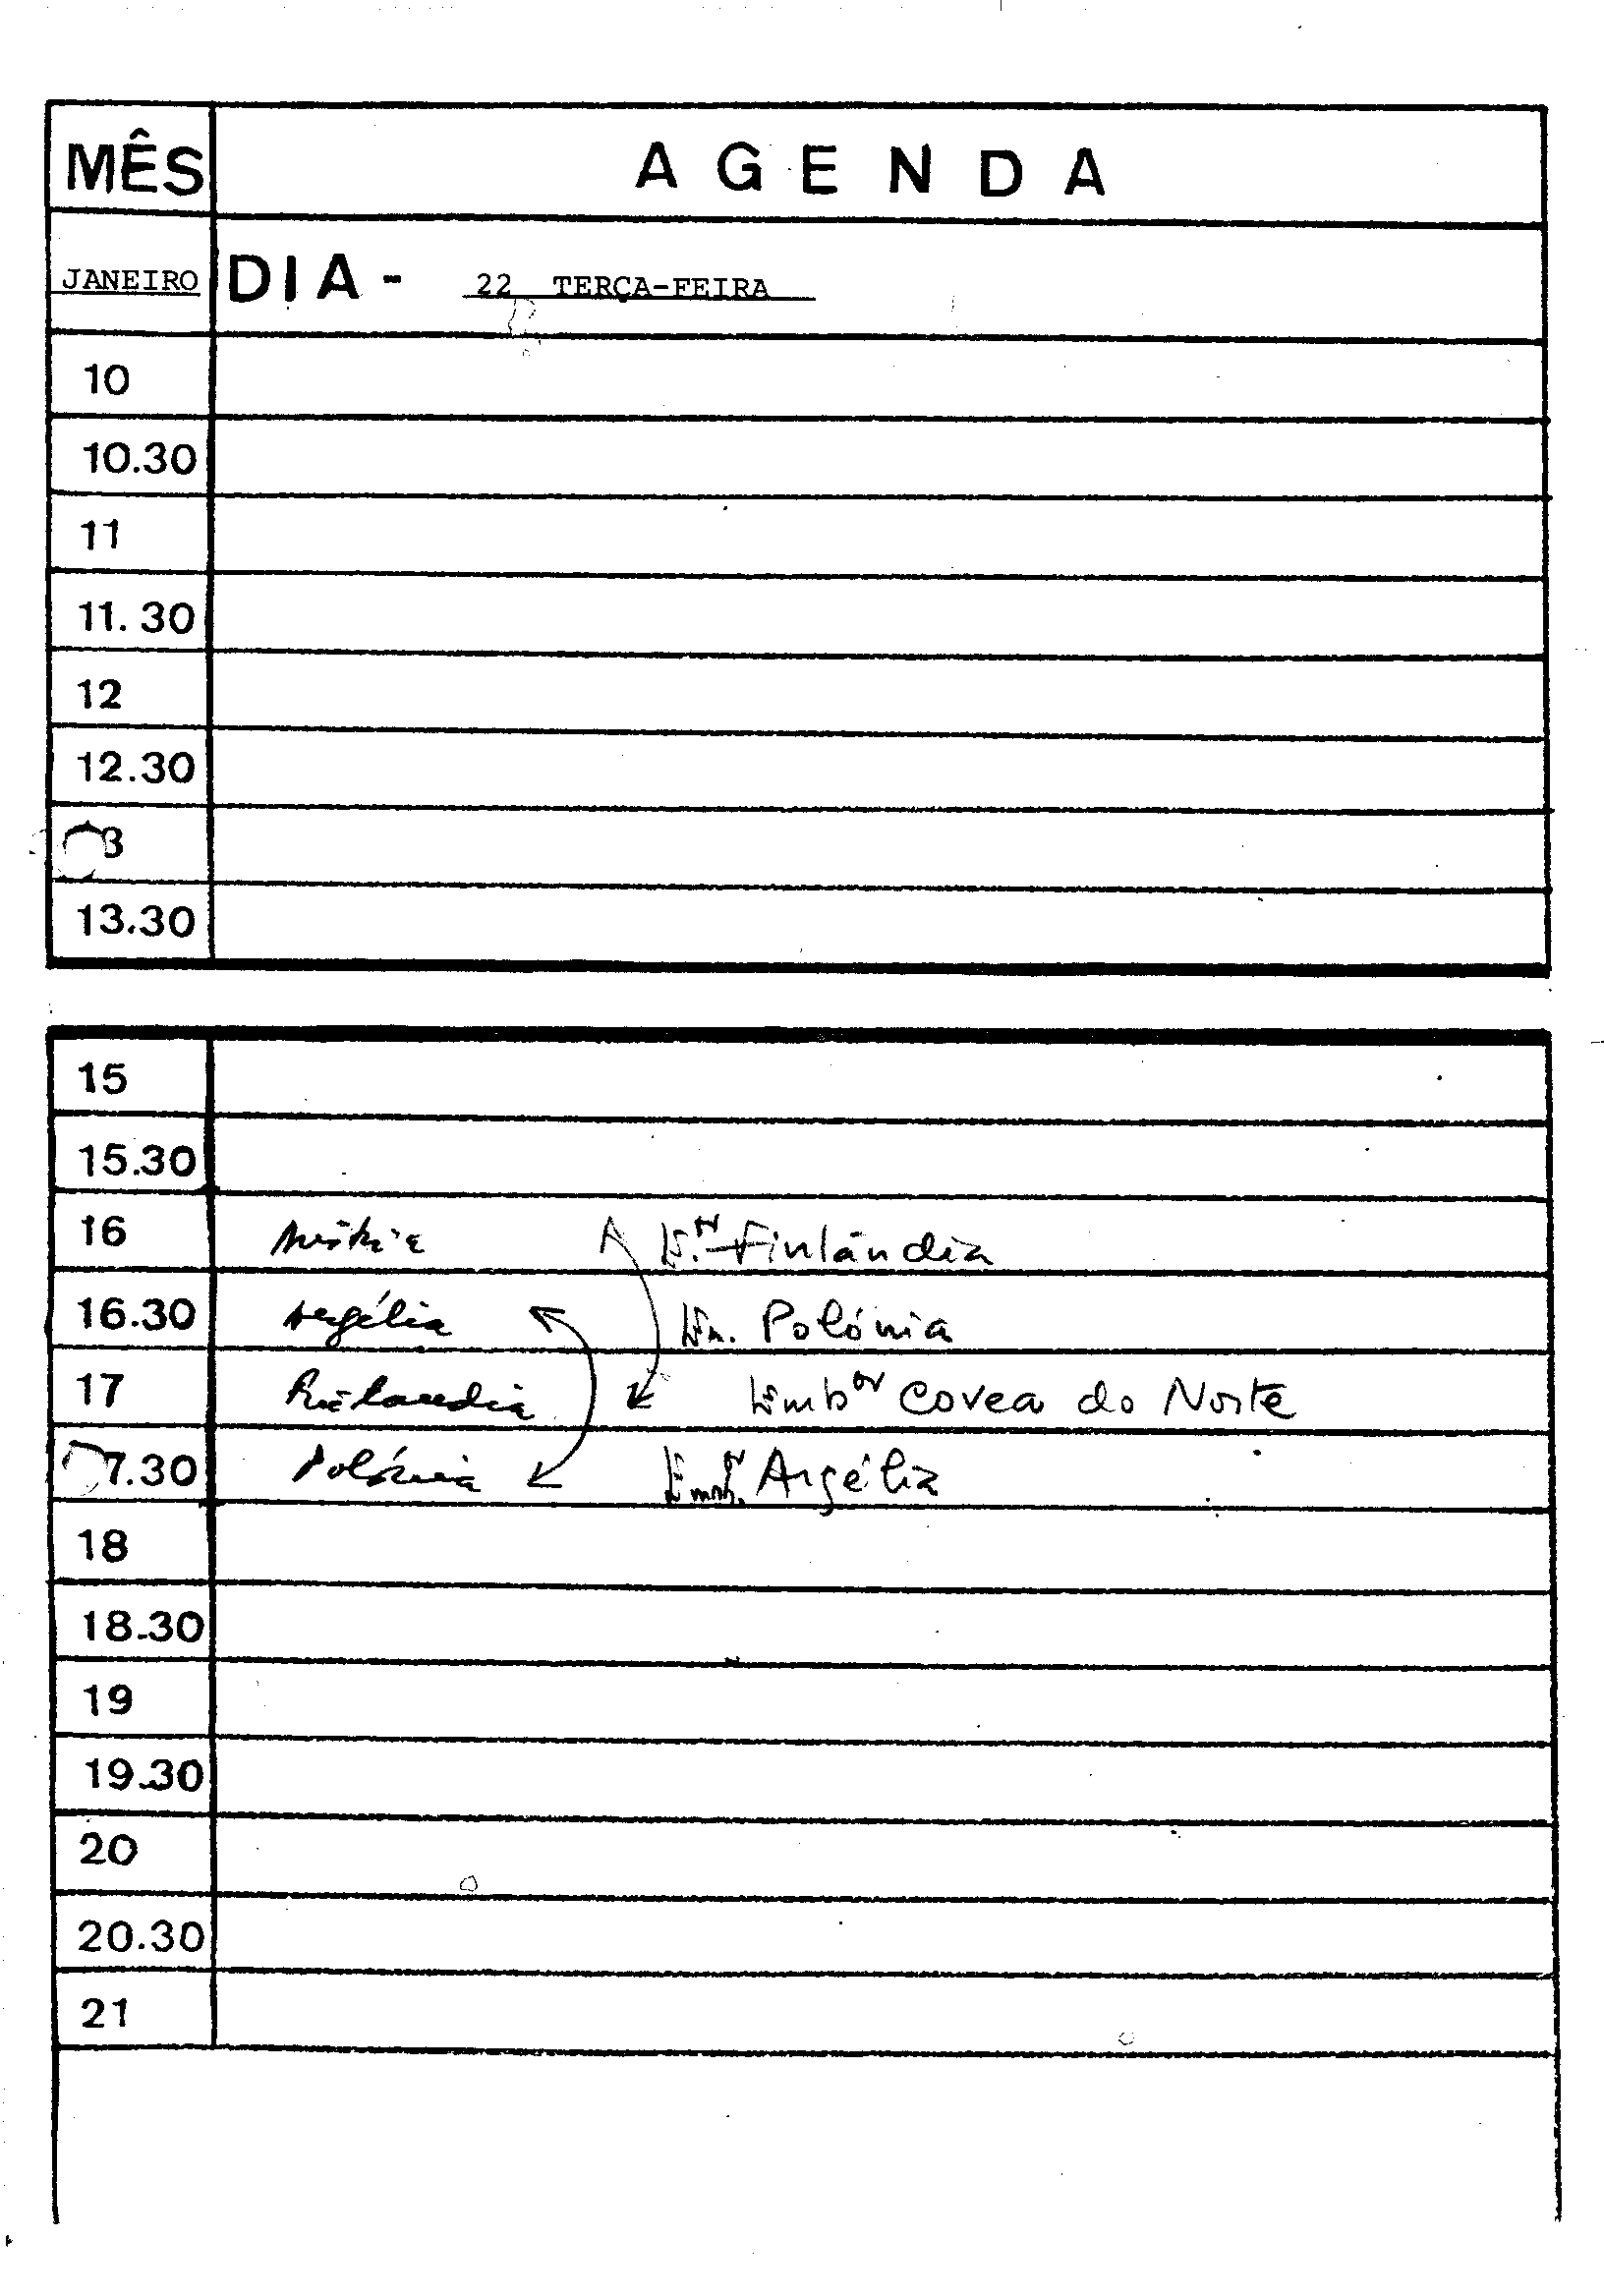 MÊS AGENDA
JANEIRO DIA - 22 TERÇA-FEIRA
10
10.30
11
11.30
12
12.30
3
13.30
15
15.30
16 Finlândia
16.30 Argélia Em. Polónia
17 Finlandia Emb.or Corea do Norte
7.30 Polónia Emb.or Argélia
18
18.30
19
19.30
20
20.30
21